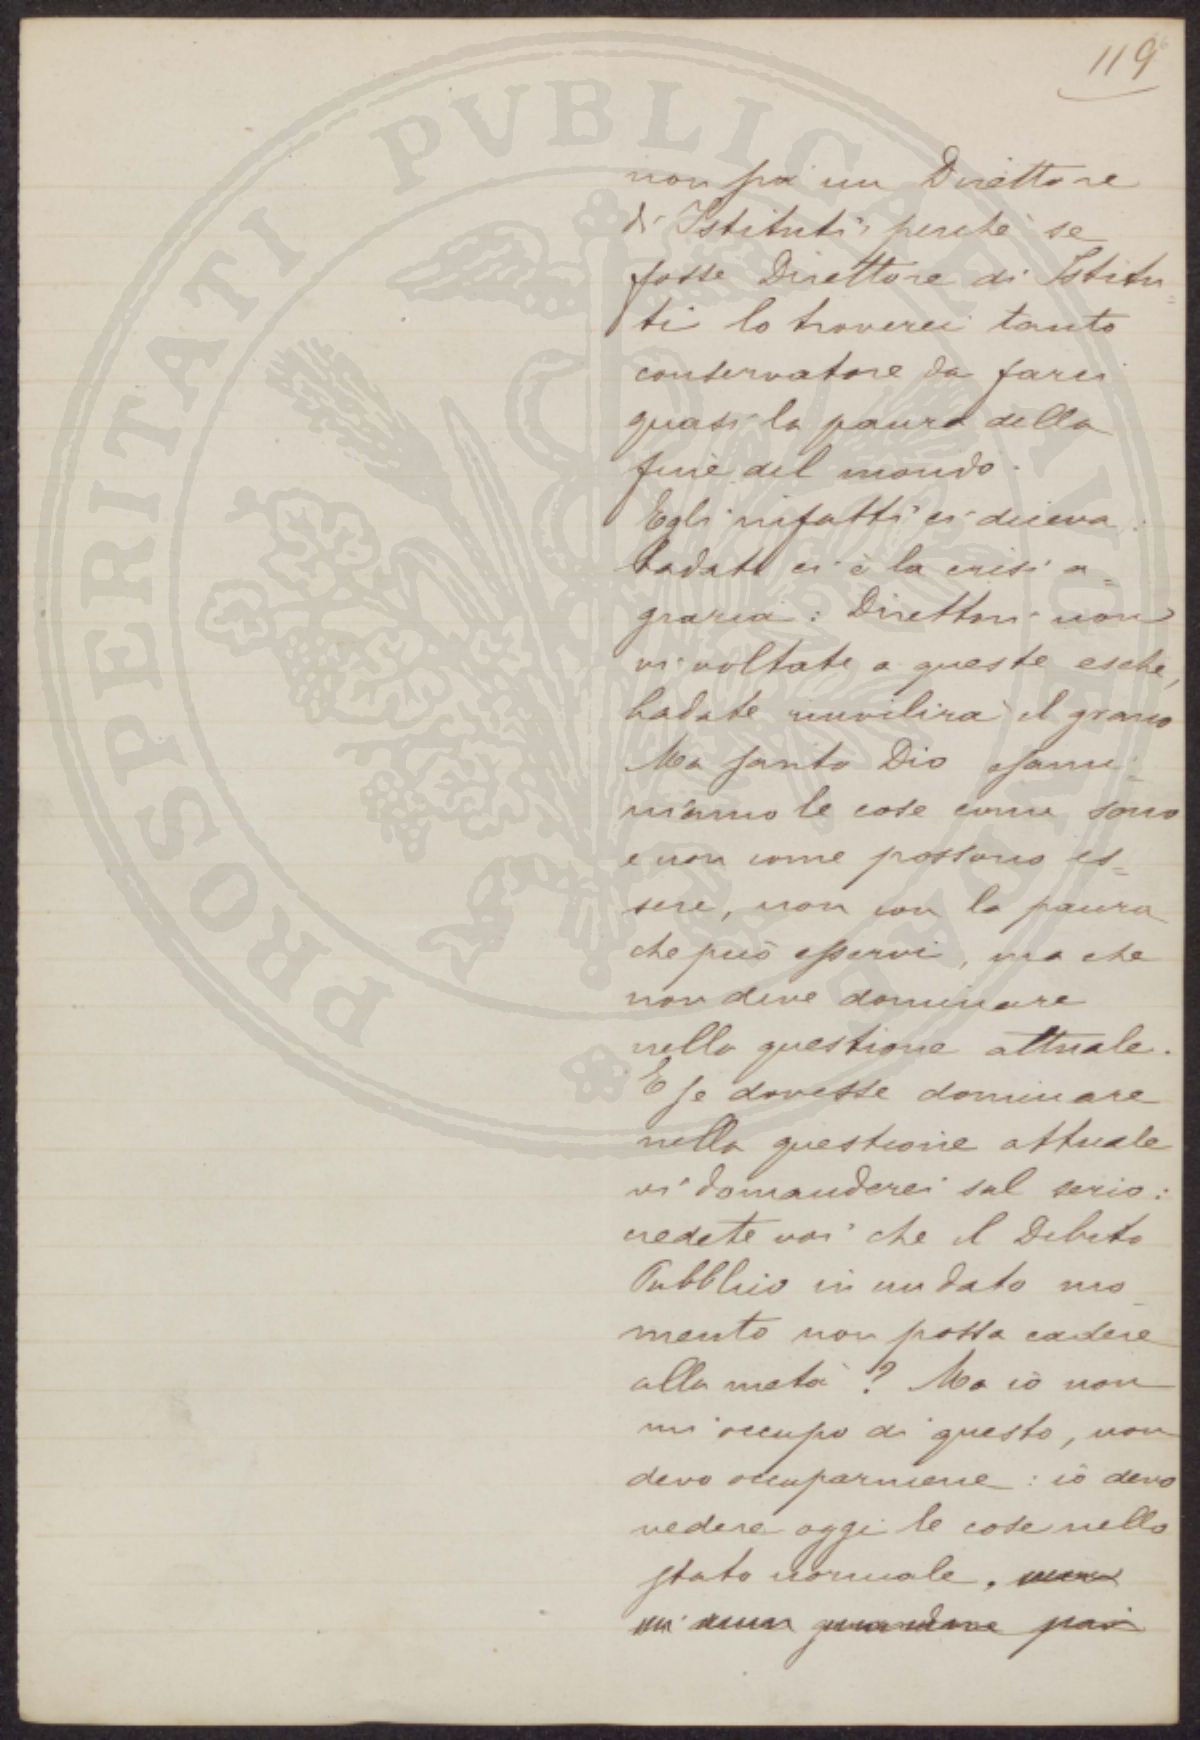 119
PROSPERITATI PVBLICAE
non sia un Direttore
di Istituti perchè se
fosse Direttore di Istitu=
ti lo troverei tanto
conservatore da farci
quasi la paura della
fine del mondo.
Egli infatti ci diceva:
badate ci è la crisi a=
graria: Direttori non
vi voltate a queste esche,
badate rinvilirà il grano
Ma santo Dio esami=
niamo le cose come sono
e non come possono es=
sere, non con la paura
che può esservi, ma che
non deve dominare
nella questione attuale.
E se dovesse dominare
nella questione attuale
vi domanderei sul serio:
credete voi che il Debito
Pubblico in un dato mo
mento non possa cadere
alla metà? Ma io non
mi occupo di questo, non
devo occuparmene: io devo
vedere oggi le cose nello
stato normale.